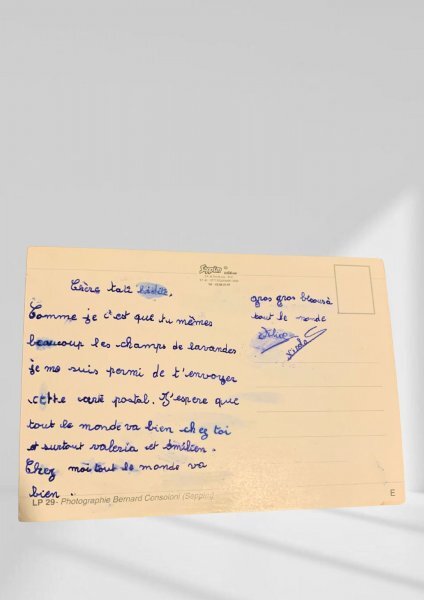 Chère tata
Comme je c'est que tu mèmes
beaucoup les champs de lavandes
je me suis permi de t'envoyer
cette carte postal. J'espere que
tout le monde va bien chez toi
et surtout valeria et émilien.
Chez moi tout le monde va
bien.
gros gros bisous à
tout le monde
LP 29- Photographie Bernard Consoloni (Seppim)
E